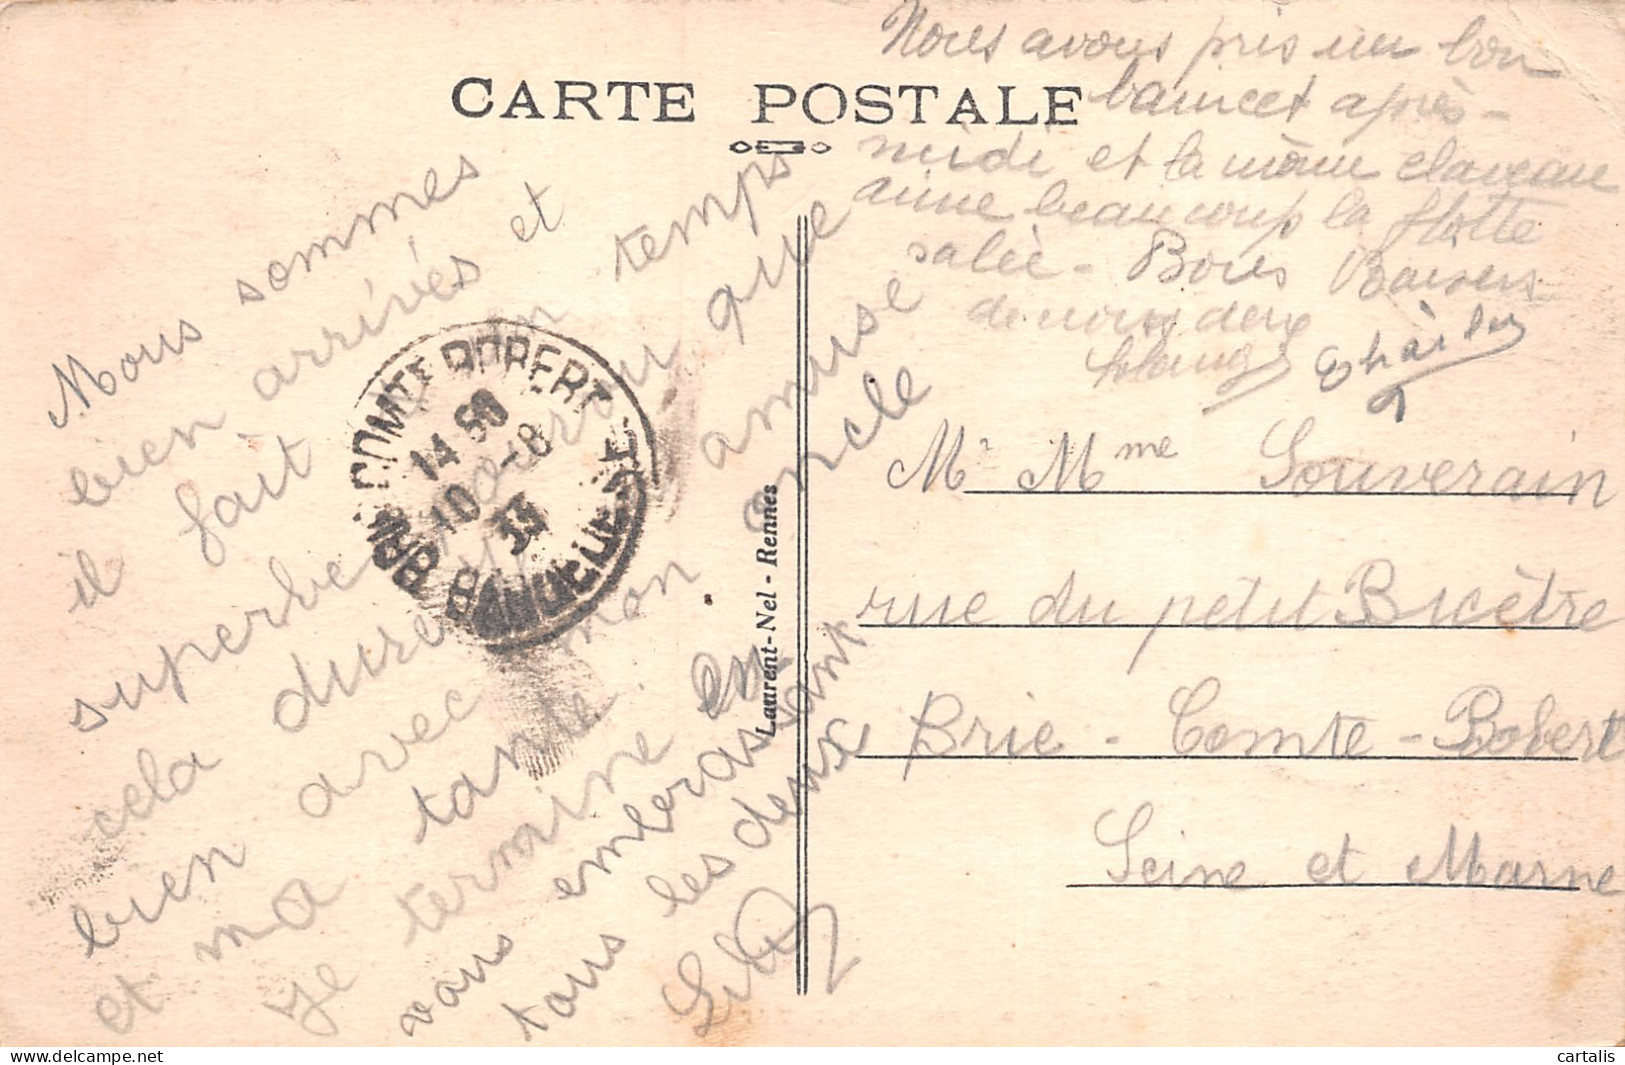 CARTE POSTALE
Nous sommes
bien arrivés et
il fait un temps
superbe pourvu que
cela dure je m'amuse
bien avec mon oncle
et ma tante.
je termine en
vous embrassant
tous les deux
Nous avons pris un bon
bain cet après-
midi et la même
aime beaucoup la flotte
salée - Bons Baisers
de nous deux
Mr Mme Souverain
rue du petit Bicêtre
Brie - Comte - Robert
Seine et Marne
BRIE COMTE ROBERT
14 50
10 - 8
33
Laurent-Nel - Rennes
cartalis